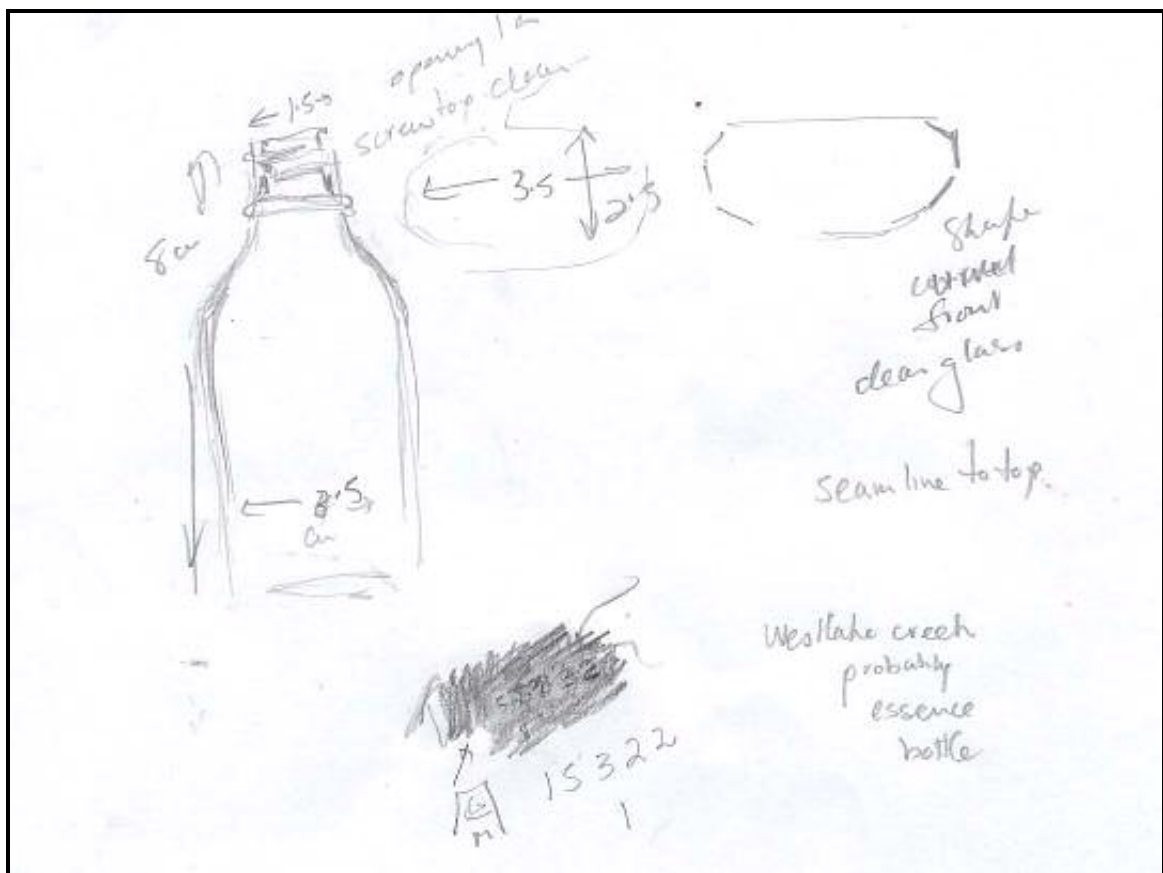 opening 1
screwtop clear
1.5
8 cm
3.5
2.5
3.5
cm
shape
front
clear glass
seam line to top.
Westlake creek
probably
essence
bottle
15322
1
G
M